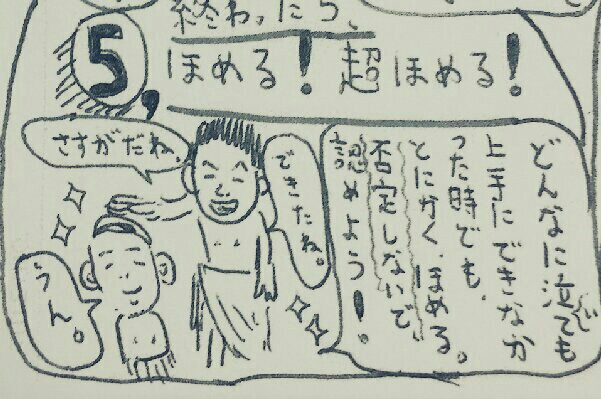 終わったら、
5,
ほめる!超ほめる!
どんなに泣いても
上手にできなか
った時でも、
とにかく、ほめる。
否定しないで、
認めよう!
できたね。
さすがだね。
うん。